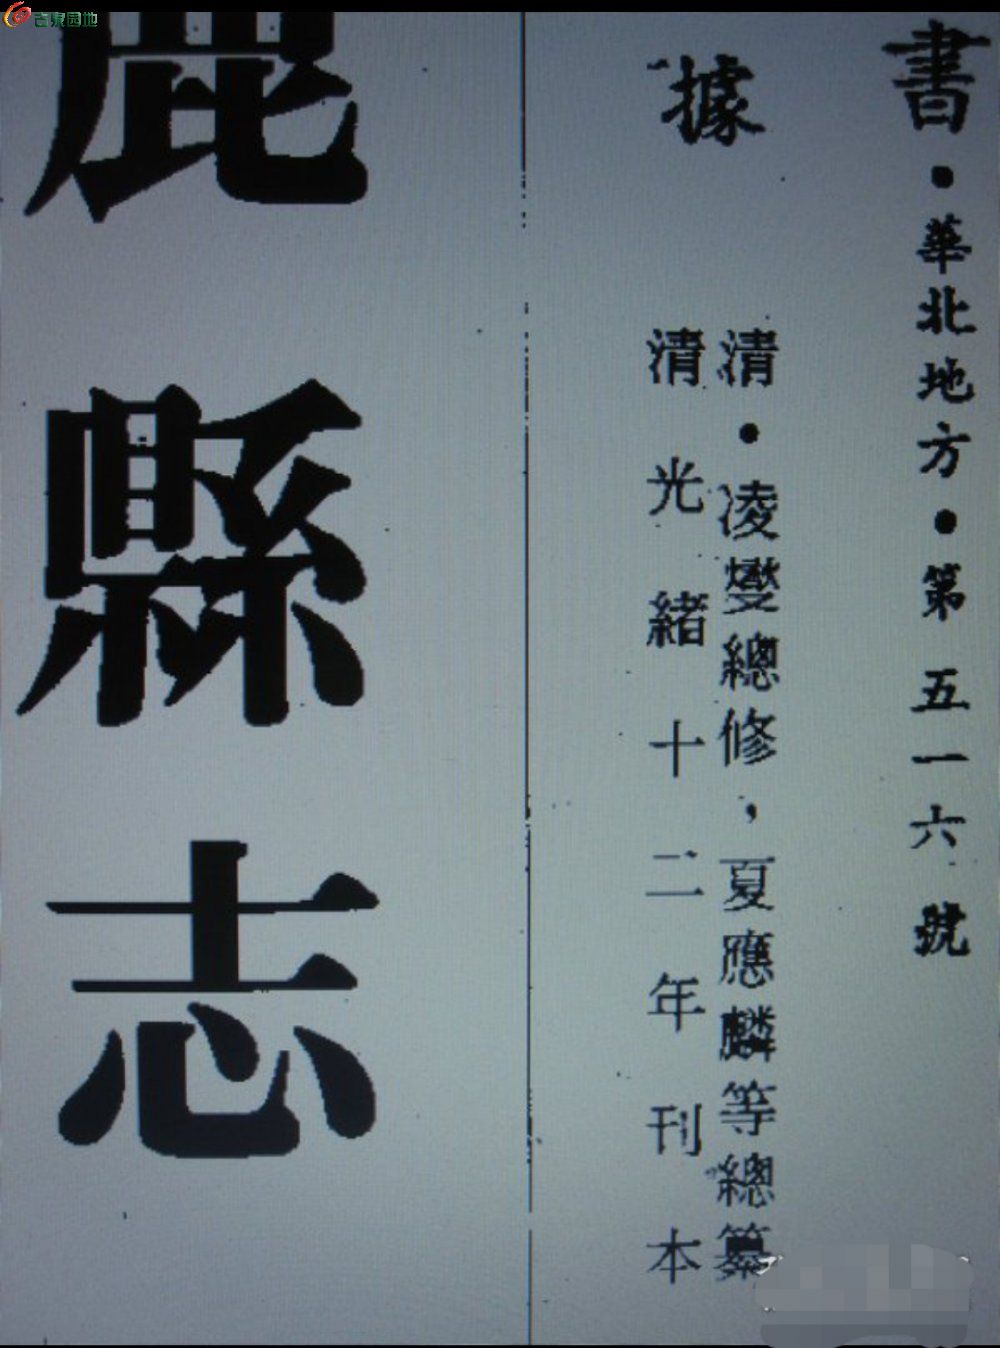 書・華北地方・第五一六號
據
清・凌燮總修，夏應麟等總纂
清光緒十二年刊本
鹿縣志
古泉园地